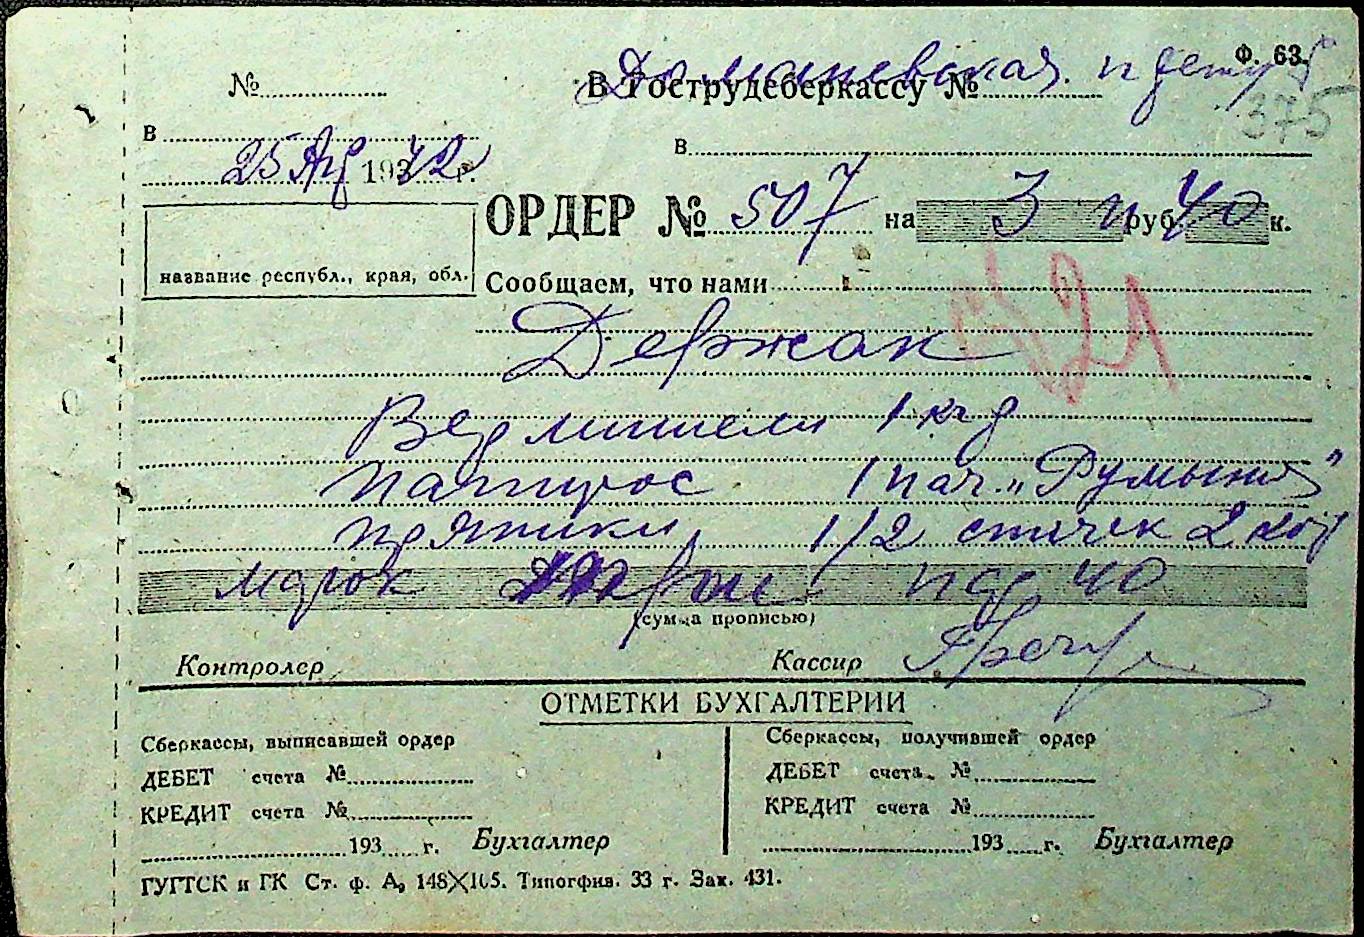 Ф. 63.
№ В Гострудсберкассу №
Доманевская
375
в в
25 Авг 1942 г.
ОРДЕР № 507 на 3 руб. 40 к.
название республ., края, обл.
Сообщаем, что нами
21
Держак
Вермишели 1 кгр
папирос 1 пач. „Румыния"
пряники 1/2 спичек 2 кор
марок три 40
(сумма прописью)
Контролер Кассир
ОТМЕТКИ БУХГАЛТЕРИИ
Сберкассы, выписавшей ордер Сберкассы, получившей ордер
ДЕБЕТ счета № ДЕБЕТ счета №
КРЕДИТ счета № КРЕДИТ счета №
193 г. Бухгалтер 193 г. Бухгалтер
ГУГТСК и ГК Ст. ф. А, 148×105. Типогфив. 33 г. Зак. 431.